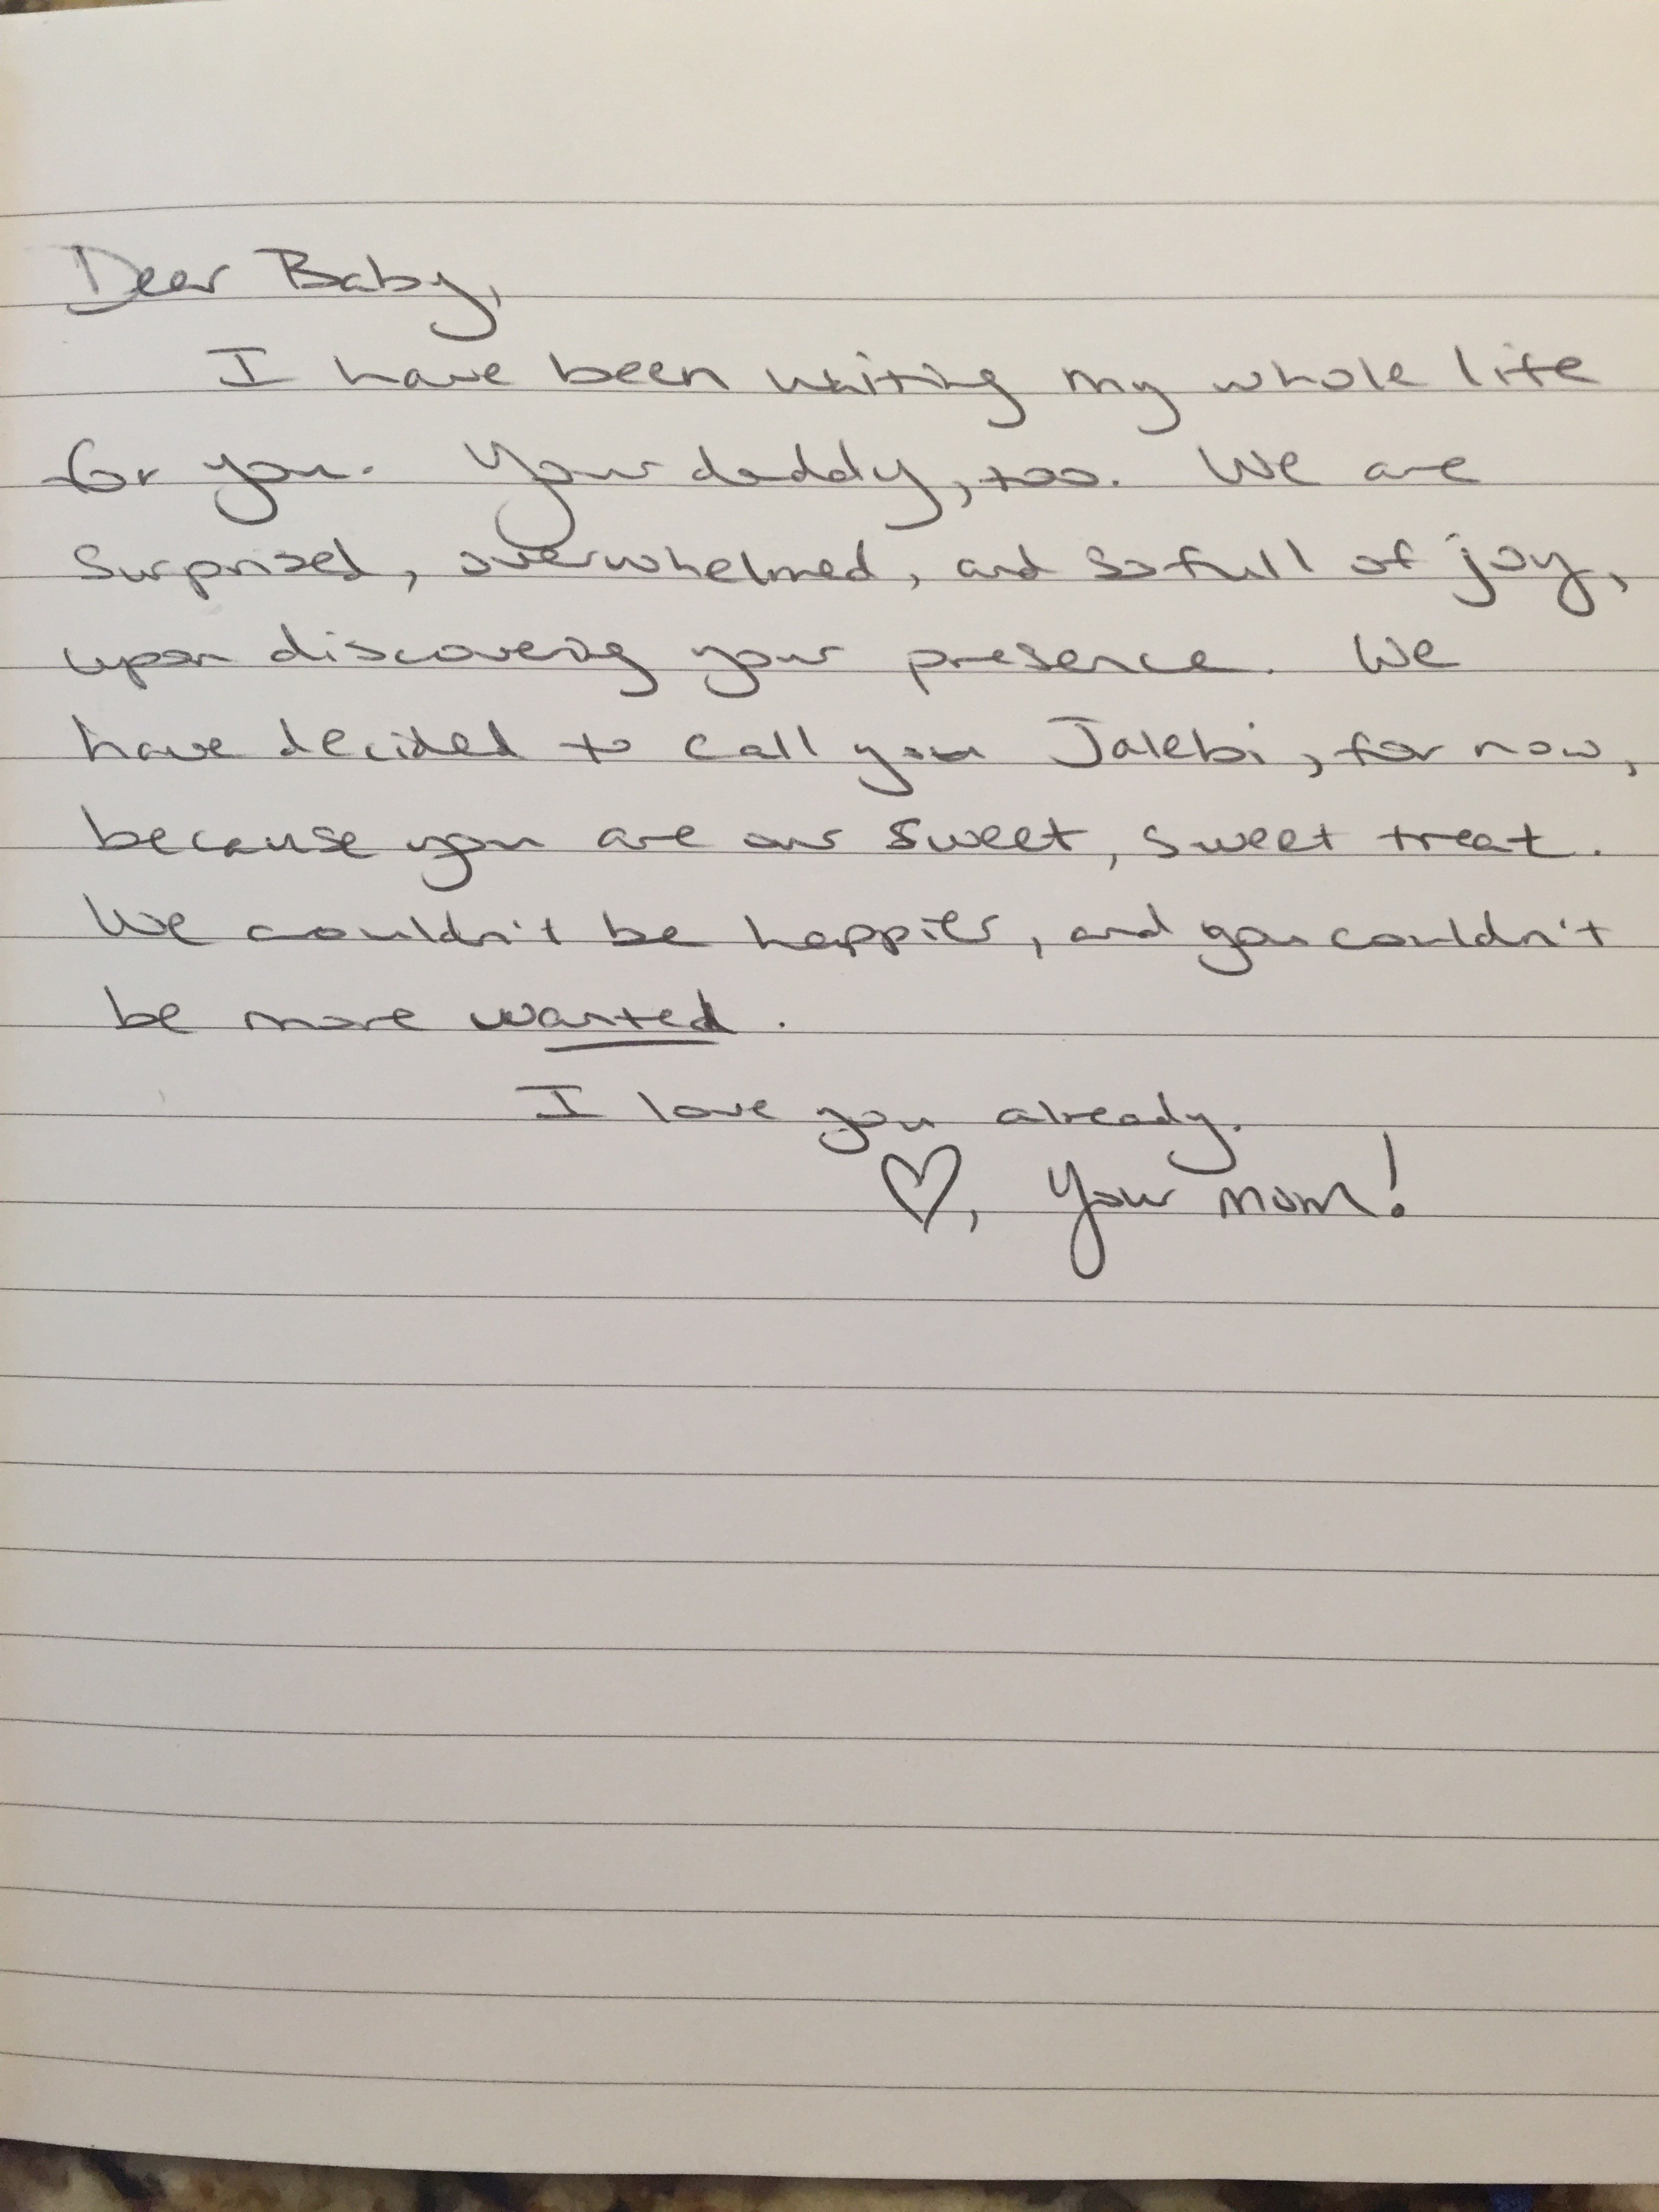 Dear Baby,
I have been waiting my whole life
for you. Your daddy, too. We are
surprised, overwhelmed, and so full of joy,
upon discovering your presence. We
have decided to call you Jalebi, for now,
because you are our sweet, sweet treat.
We couldn't be happier, and you couldn't
be more wanted.
I love you already.
♡, Your mom!